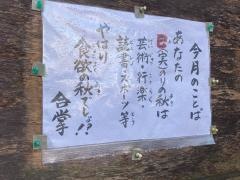 今月のことば
あなたの
実りの秋は
芸術・行楽・
読書・スポーツ等
やはり
食欲の秋でしょ!?
合掌